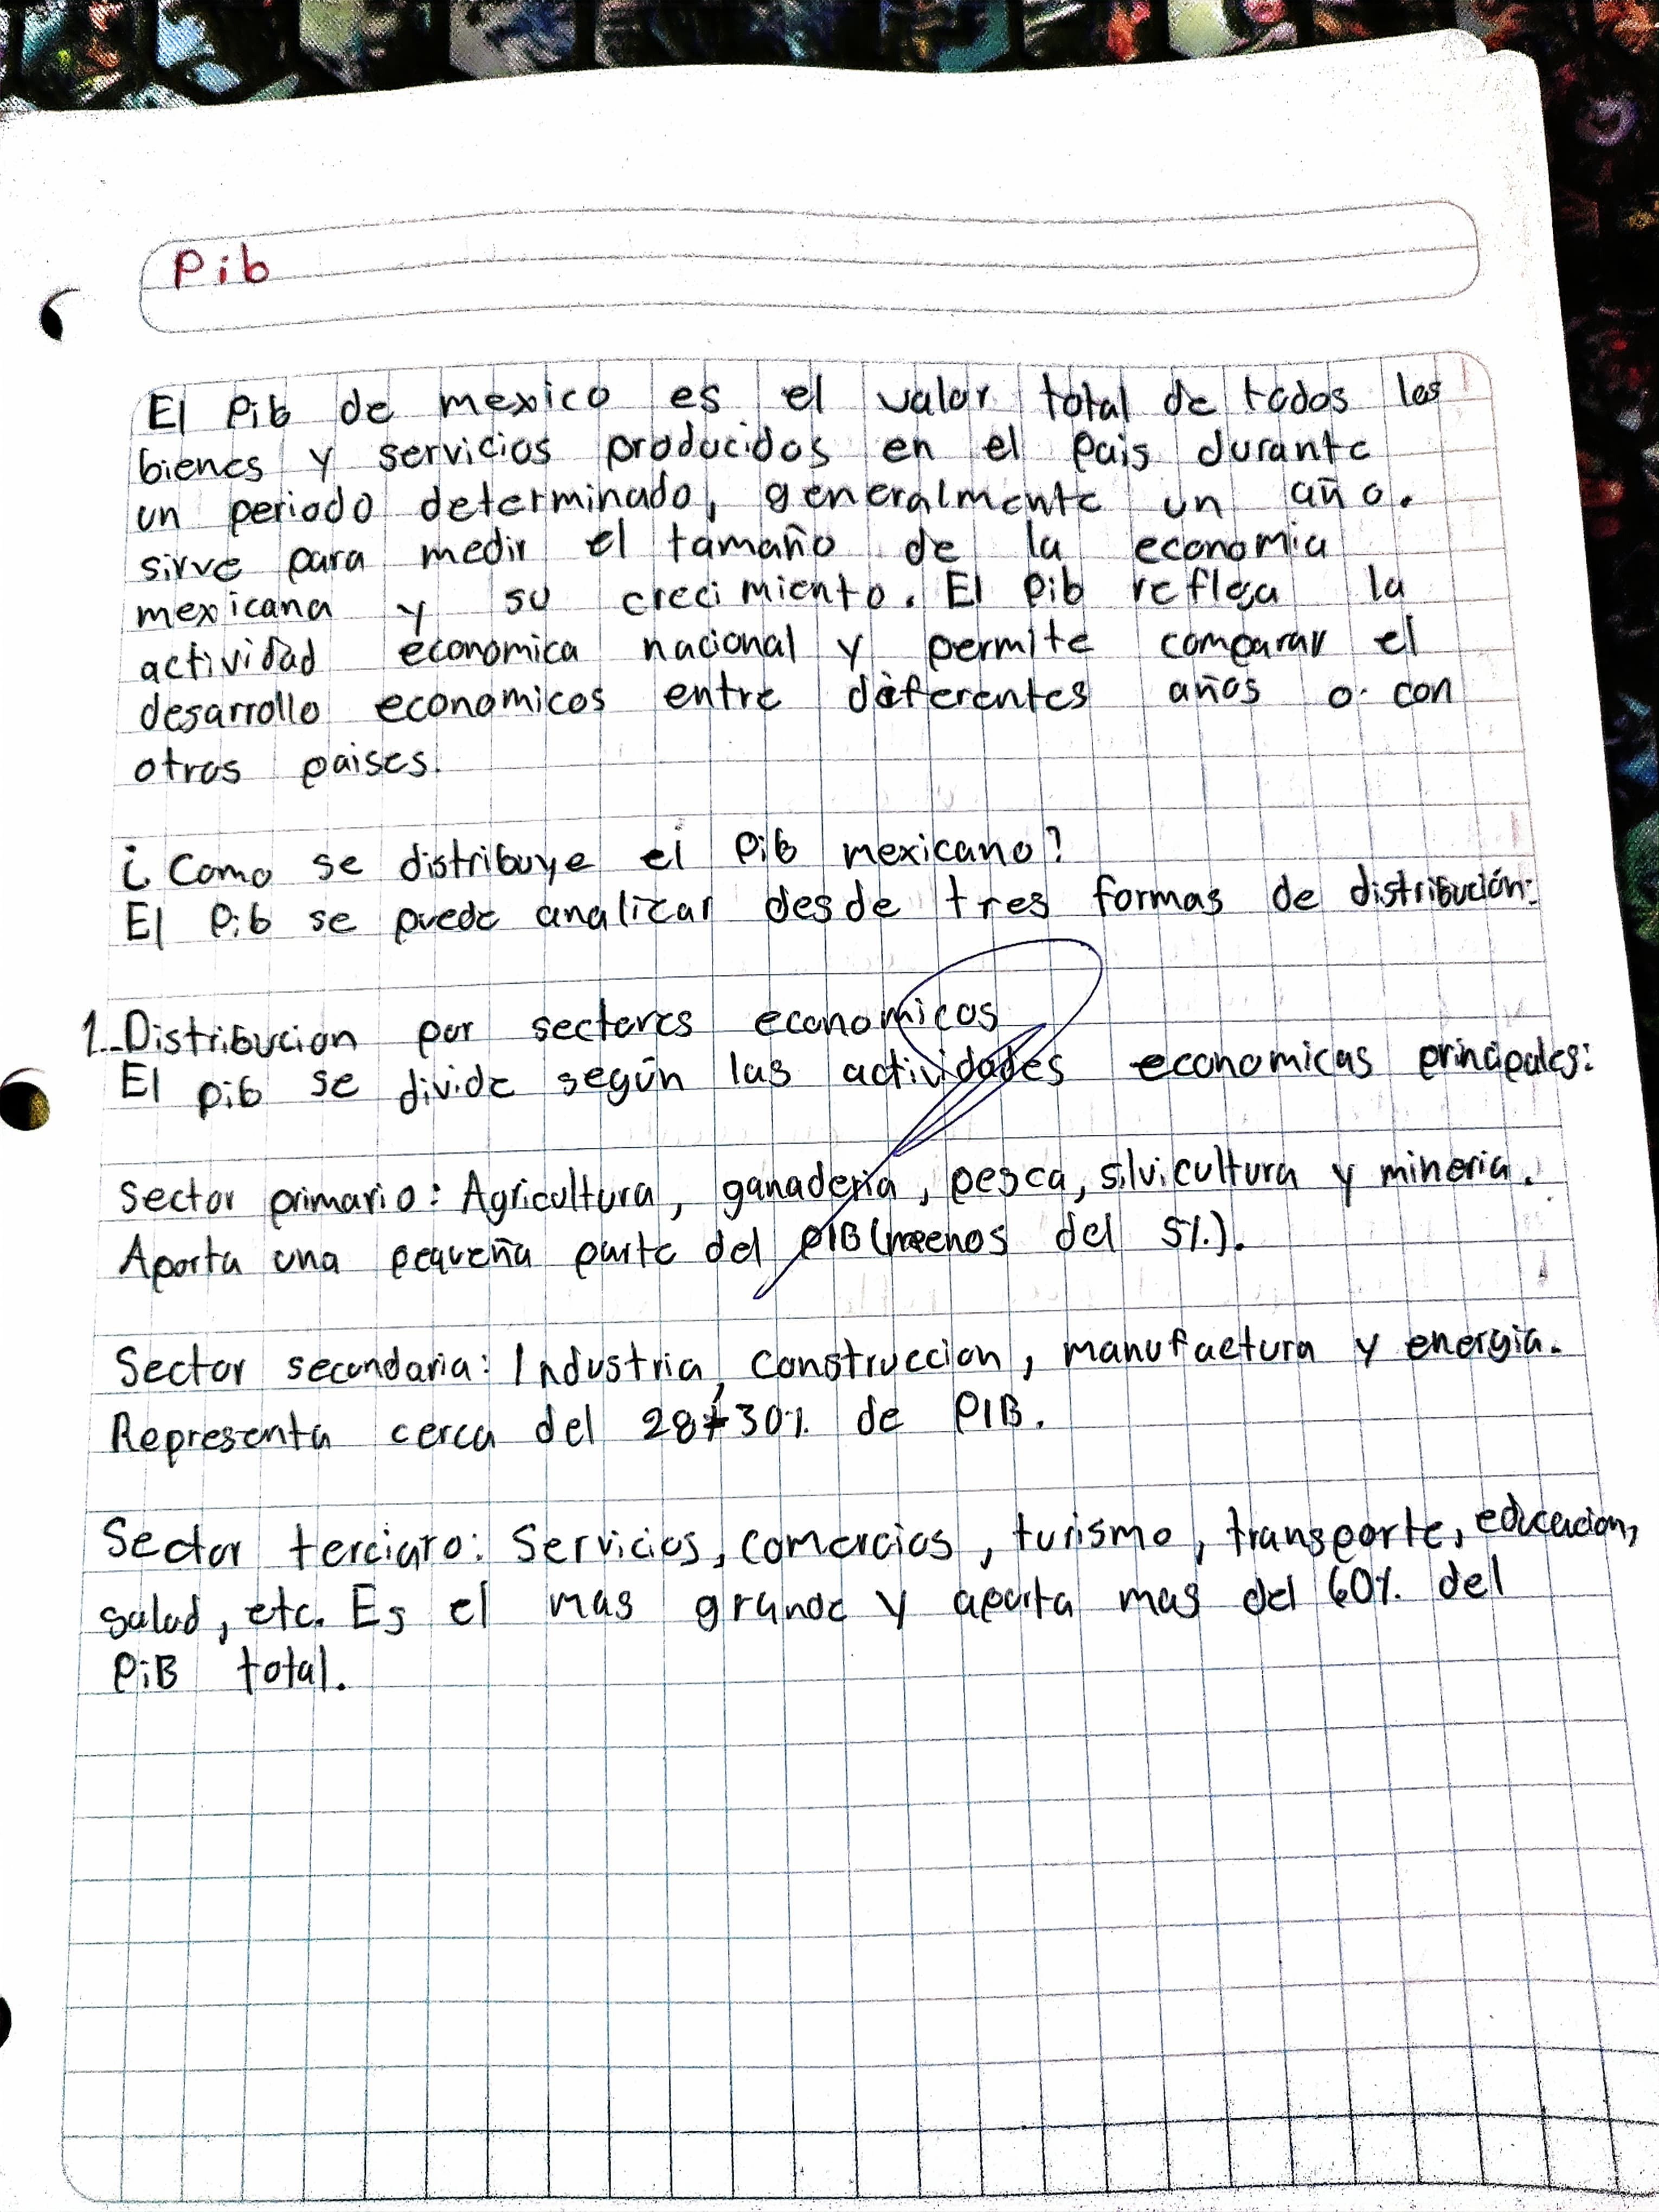 Pib
El Pib de mexico es el valor total de todos los
bienes y servicios producidos en el pais durante
un periodo determinado, generalmente un año.
sirve para medir el tamaño de la economia
mexicana y su crecimiento. El pib refleja la
actividad economica nacional y permite comparar el
desarrollo economicos entre diferentes años o con
otros paises.
¿Como se distribuye el Pib mexicano?
El Pib se puede analizar desde tres formas de distribución:
1.-Distribucion por sectores economicos
El pib se divide según las actividades economicas principales:
Sector primario: Agricultura, ganaderia, pesca, silvicultura y mineria.
Aporta una pequeña parte del PIB (menos del 5%).
Sector secundaria: Industria, construccion, manufactura y energia.
Representa cerca del 28-30% de PIB.
Sector terciaro: Servicios, comercios, turismo, transporte, educacion,
salud, etc. Es el mas grande y aporta mas del 60% del
PiB total.